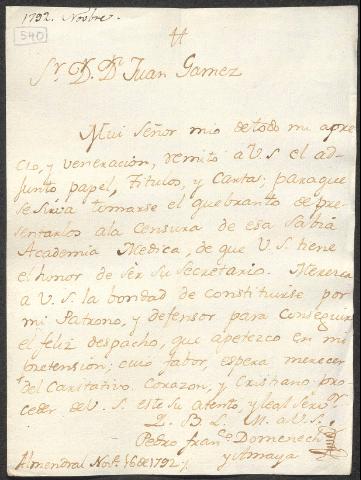 1792. Novbre.
540
Sr. Dn. Dn. Juan Gamez
Mui Señor mio de todo mi apre
cio, y veneración, remito a V.S el ad-
junto papel, Titulos, y Cartas; para que
se sirva tomarse el quebranto de pre
sentarlos a la Censura de esa Sabia
Academia Medica, de que V.S tiene
el honor de ser su Secretario. Merezca
a V.S. la bondad de constituirse por
mi Patrono, y defensor para conseguir
el feliz despacho, que apetezco en mi
pretension; cuio fabor, espera merecer
del Caritativo Corazon, y Cristiano pro
ceder de V.S. este su atento, y leal servr.
Q. B. L. M. a V.S.
Pedro Franco. Domenech
y Amaya
Almendral Nove. 16 de 1792